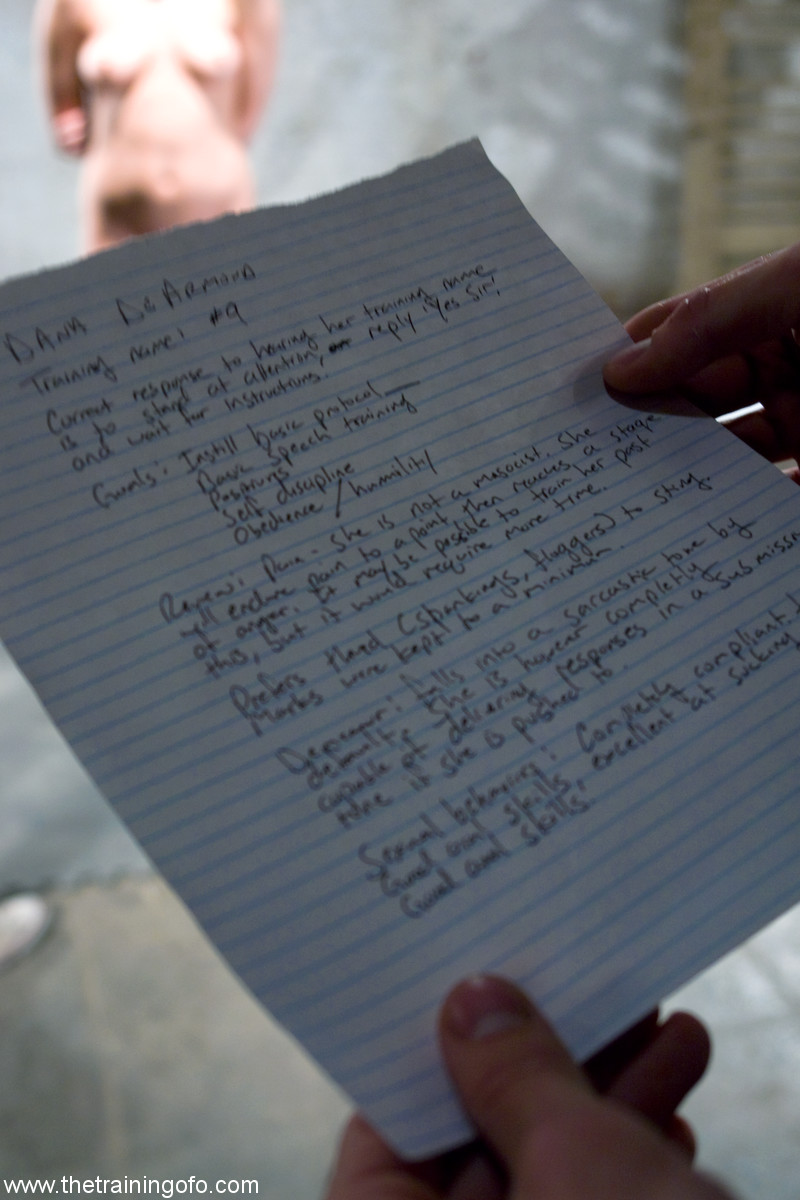 DANA DeARMOND
Training name: #9
Correct response to hearing her training name
is to stand at attention, reply "Yes Sir,"
and wait for instructions.
Goals: Instill basic protocol
Basic speech training
Postures
Self discipline
Obedience / humility
Review: Pain - She is not a masocist. She
will endure pain to a point then reaches a stage
of anger. It may be possible to train her past
this, but it would require more time.
Prefers thud (spankings, floggers) to sting.
Marks were kept to a minimum.
Demeanor: falls into a sarcastic tone by
default. She is however completely
capable of delivering responses in a submissive
tone if she is pushed to.
Sexual behavior: Completely compliant.
Good oral skills, excellent at sucking
Good anal skills.
www.thetrainingofo.com